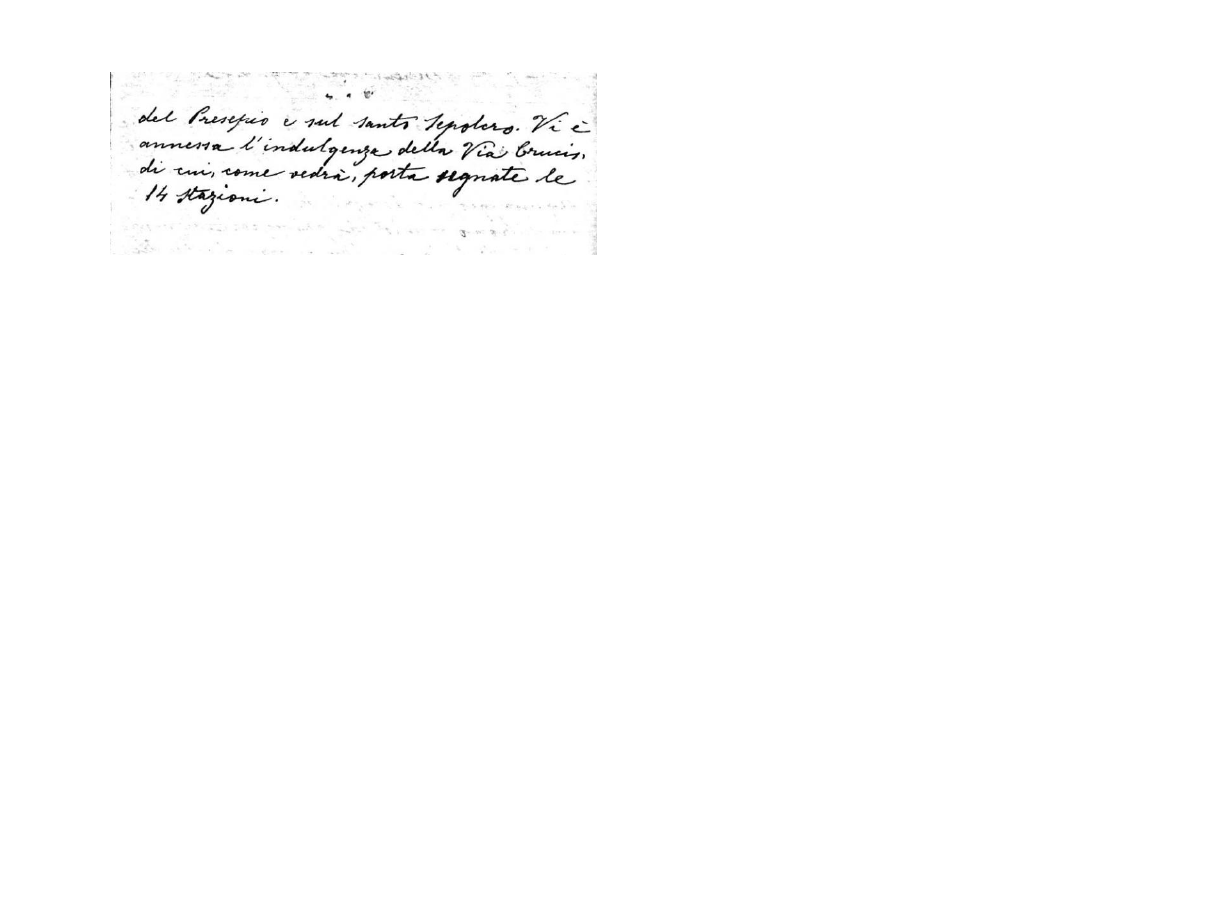 del Presepio e sul santo Sepolcro. Vi è
annessa l'indulgenza della Via Crucis,
di cui, come vedrà, porta segnate le
14 stazioni.